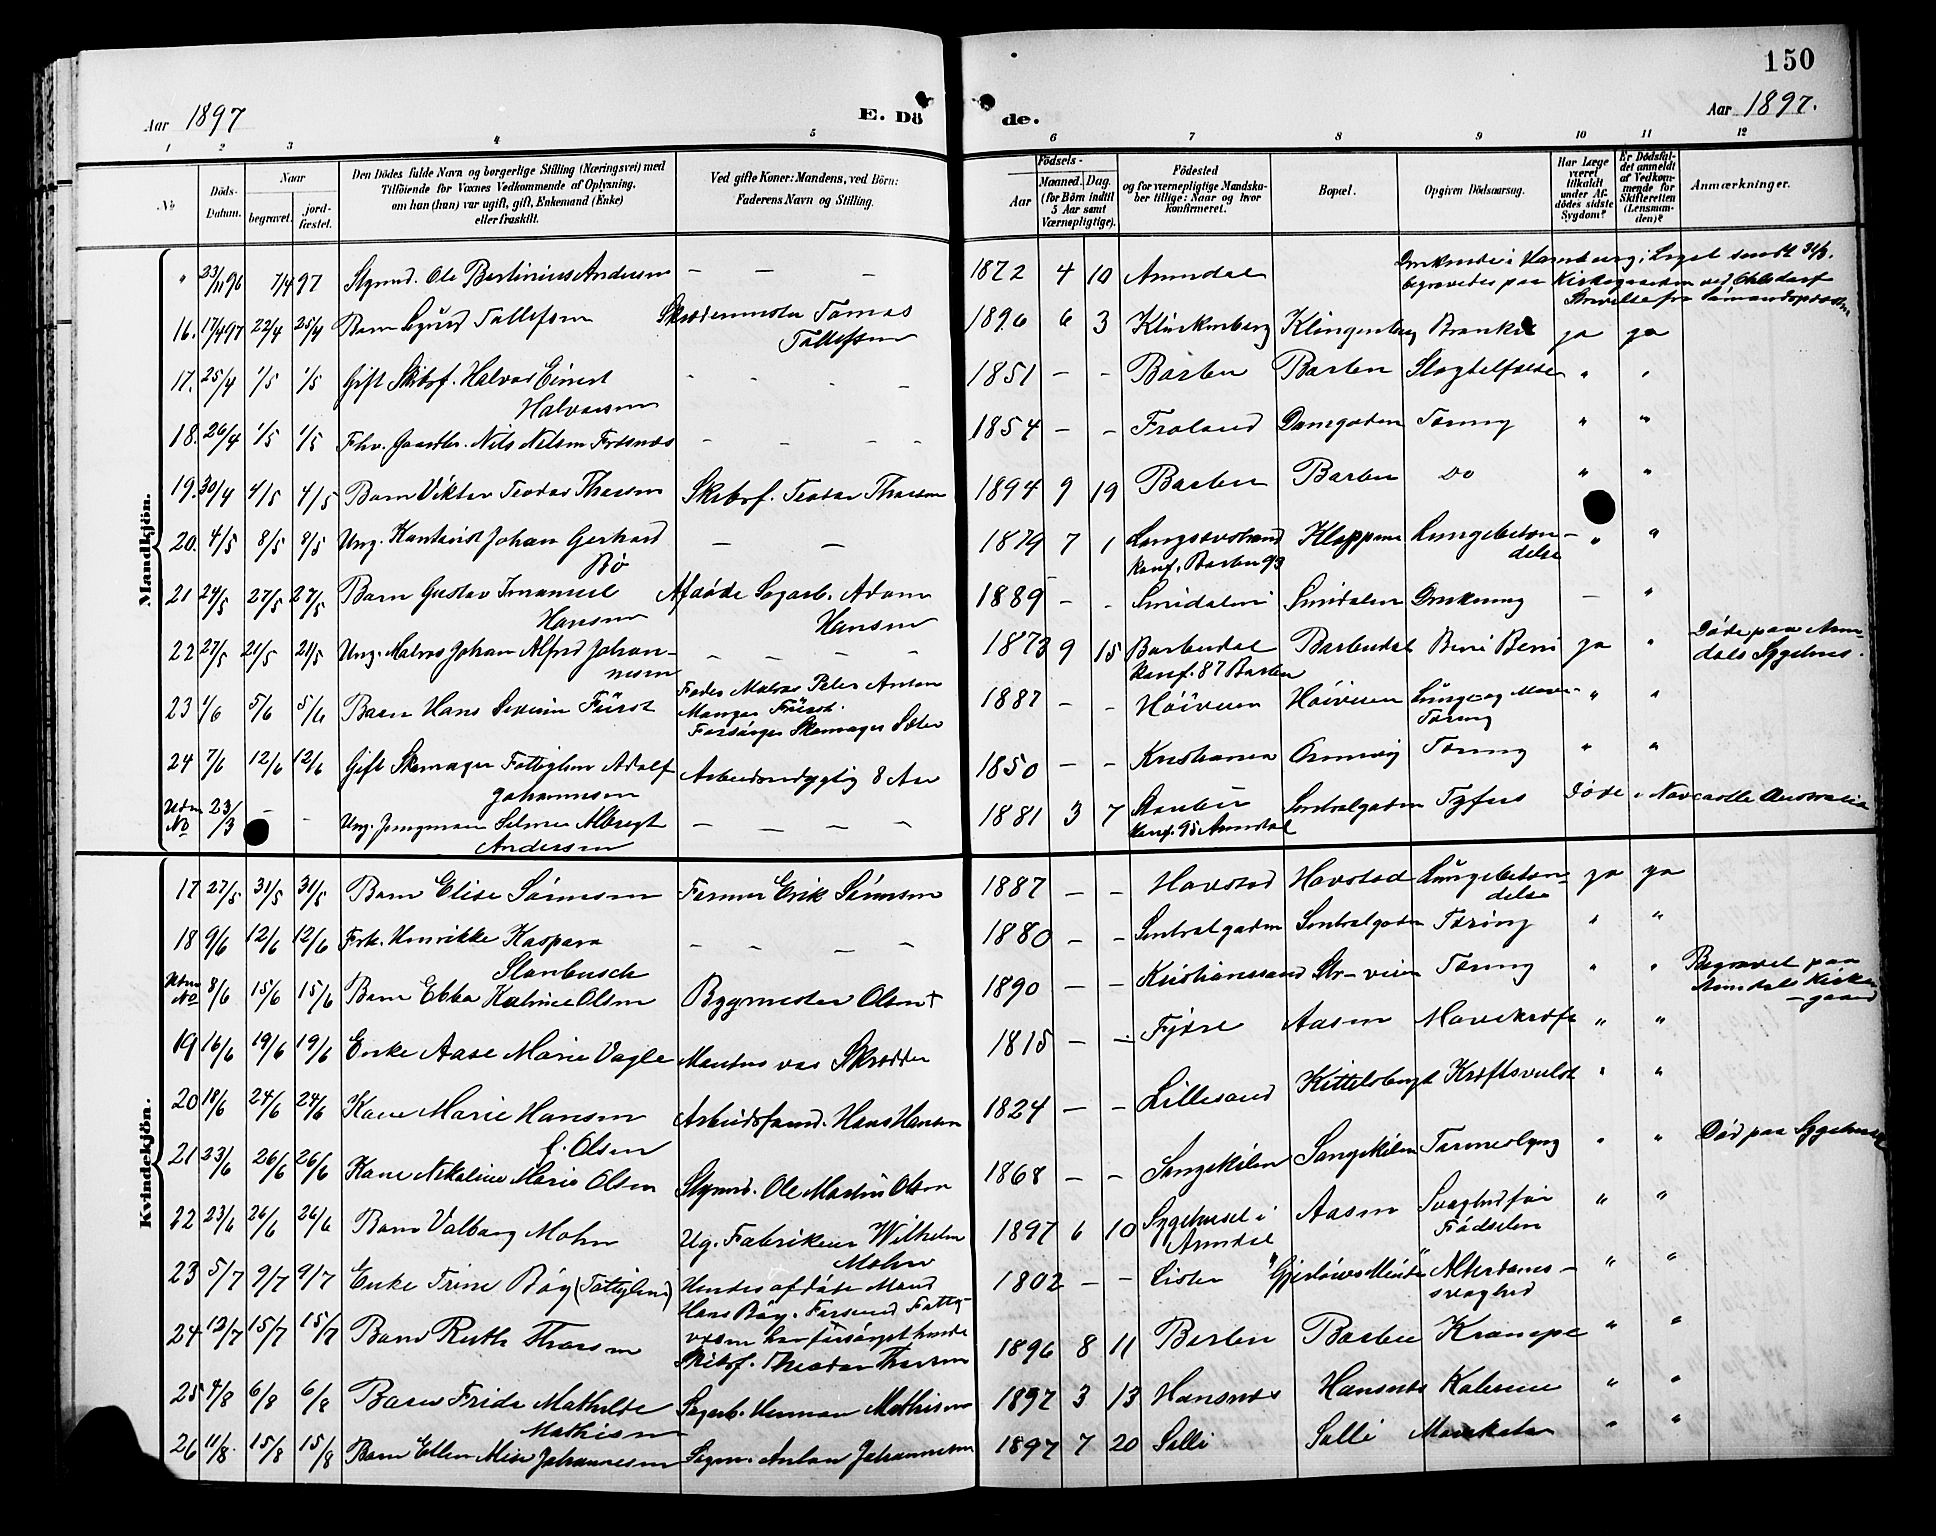 150
Aar 1897
E. Dö
de.
Aar 1897.
1 2 3 4 5 6 7 8 9 10 11 12
No
Döds-Datum.
Naar
begravet.
jord-fæstet.
Den Dödes fulde Navn og borgerlige Stilling (Næringsvei) med
Tilföiende for Voxnes Vedkommende af Oplysning,
om han (hun) var ugift, gift, Enkemand (Enke)
eller fraskilt.
Ved gifte Koner: Mandens, ved Börn:
Faderens Navn og Stilling.
Födsels-
Aar
Maaned. Dag.
(for Börn indtil
5 Aar samt
Værnepligtige).
Födested
og for værnepligtige Mandska-
ber tillige: Naar og hvor
konfirmeret.
Bopæl.
Opgiven Dödsaarsag.
Har Læge
været
tilkaldt
under Af-
dödes sidste
Sygdom?
Er Dödsfal-
det anmeldt
af Vedkom-
mende for
Skifteretten
(Lensman-
den)?
Anmærkninger.
Mandkjön.
" 23/11 96 7/4 97 Styrmd. Ole Bertinius Andersen — — — 1872 4 10 Arendal
Druknede i Hamburg; Liget fundt 31/3.
begravedes paa Kirkegaarden ved Ohlsdorf
16. 17/4 97 22/4 25/4 Barn Sigurd Tallefsen Skrædermester Tomas
Tallefsen 1896 6 3 Klinkenberg Klingenberg ja ja
17. 25/4 1/5 1/5 Gift Skibsf. Halvor Einert
Halvorsen - - - - 1851 — - Barbu Barbu " "
18. 26/4 1/5 1/5 Fhv. Gaardbr. Nils Nelsen Frøsnæs - - - - 1854 — - Froland Tæring " "
19. 30/4 4/5 4/5 Barn Viktor Teodor Thorsen Skibsf. Teodor Thorsen 1894 9 19 Barbu Barbu Do " "
20. 4/5 8/5 8/5 Ung. Kontorist Johan Gerhard
Bø — — 1879 7 1 Langsævstrand
konf. Barbu 93 Kloppene Lungebeten-
delse " "
21 24/5 27/5 27/5 Barn Gustav Imanuel
Hansen Afdøde Sagarb. Adam
Hansen 1889 - - Smidalen Smidalen Drukning — "
22 27/5 21/5 21/5 Ung. Matros Johan Alfred Johan-
nesen — — — - 1873 9 15 Barbudal
konf. 87 Barbu Barbudal Beri Beri ja " Døde paa Aren-
dals Sygehus.
23 1/6 5/6 5/6 Barn Hans Severin Fürst Fader Matros Peter Anton
Fürst.
Forsørger Skomager Sæter 1887 — - Høiveien Høiveien Lunge og Mave-
Tæring " "
24 7/6 12/6 12/6 Gift Skomager Fattiglem Adolf
Johannesen Arbeidsudygtig 8 Aar 1850 — — Kristiania Tæring " "
Uden
No 23/3 — - Ung. Jungmand Selmer Albregt
Andersen — — — - 1881 3 7 Strubu
konf. 95 Arendal Sentralgaden Tyfus Døde i Newcastle Australia
Kvindekjön.
17 27/5 31/5 31/5 Barn Elise Sørensen Former Erik Sørensen 1887 — - Havstad Havstad Lungebeten-
delse ja ja
18 9/6 12/6 12/6 Frk. Henrikke Kaspara
Stanbusch - - — - 1880 — - Sentralgaden Sentralgaden Tæring " "
Uden
No 8/6 15/6 15/6 Barn Ebba Katrine Olsen Bygmester Olsen + 1890 — - Kristianssand Str-veien Tæring " " Begravet paa
Arendals Kirke-
gaard
19 16/6 19/6 19/6 Enke Aase Marie Vagle Manden var Skrædder 1815 — — Fjære Aasen Mavekræft " "
20 18/6 24/6 24/6 Kone Marie Hansen
f. Olsen Arbeidsmand. Hans Hansen 1824 — - Lillesand Kittelsbugt Kræftsvulst " "
21 23/6 26/6 26/6 Kone Nikoline Marie Olsen Styrmd. Ole Martin Olsen 1868 — - Songekilen Songekilen Tarmeslyng " " Død paa Sygehuset
22 23/6 26/6 26/6 Barn Valborg Mohn Ug. Fabrikeier Wilhelm
Mohn 1897 6 10 Sygehuset i
Arendal Aasen Svaghed før
Fødselen " "
23 5/7 9/7 9/7 Enke Trine Bøy (Fattiglem) Hendes afdøde Mand
Hans Bøy. Fattig-
væsn har forsørget hende 1802 — - Lister "Gjerløws Minde" Alderdoms-
svaghed " "
24 12/7 15/7 15/7 Barn Ruth Thorsen Skibsf. Theodor Thorsen 1896 8 11 Barbu Barbu Krampe " "
25 4/8 6/8 6/8 Barn Frida Mathilde
Mathisen Sagarb. Herman Mathisen 1897 3 13 Hansnæs Hansnæs Kolerine " "
26 11/8 15/8 15/8 Barn Ellen Johannesen Anton Johannesen 1897 7 20 Solli Solli " "